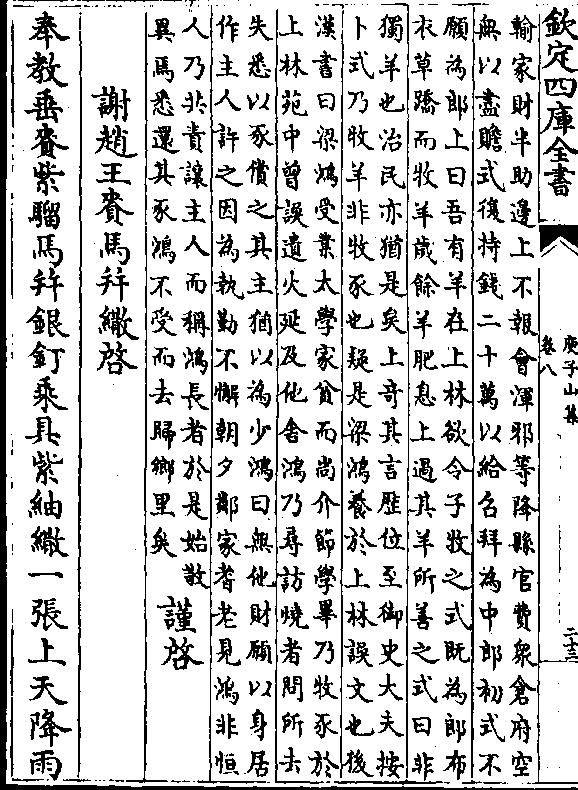 欽定四庫全書
庾子山集
卷八
二十三
輸家財半助邊上不報會渾邪等降縣官費衆倉府空
無以盡贍式復持錢二十萬以給名拜為中郎初式不
願為郎上曰吾有羊在上林欲令子牧之式既為郎布
衣草蹻而牧羊歳餘羊肥息上過其羊所善之式曰非
獨羊也治民亦猶是矣上竒其言歴位至御史大夫按
卜式乃牧羊非牧豕也疑是梁鴻養於上林誤文也後
漢書曰梁鴻受業太學家貧而尚介節學畢乃牧豕於
上林苑中曾誤遺火延及他舍鴻乃尋訪燒者問所去
失悉以豕償之其主猶以為少鴻曰無他財願以身居
作主人許之因為執勤不懈朝夕鄰家耆老見鴻非恒
人乃共責讓主人而稱鴻長者於是始敬
異焉悉還其豕鴻不受而去歸鄉里矣
謹啓
謝趙王賚馬并繖啓
奉教垂賚紫騮馬并銀釘乘具紫紬繖一張上天降雨